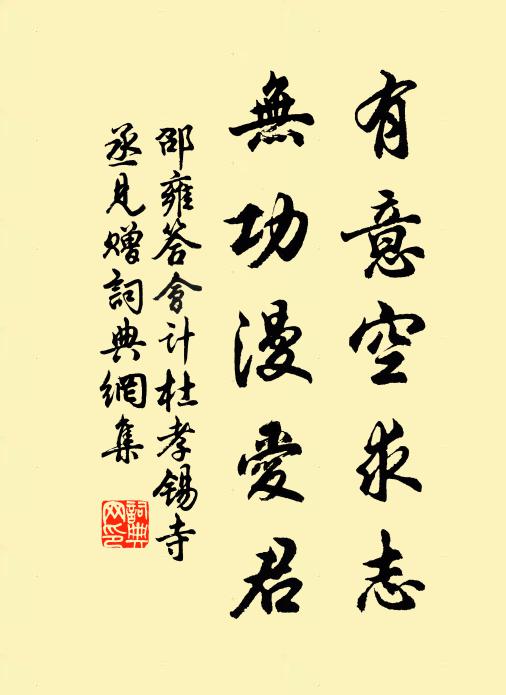 有意空求志
無功漫愛君
邵雍答會计杜孝锡寺
丞見贈詞典網集
詞典網印